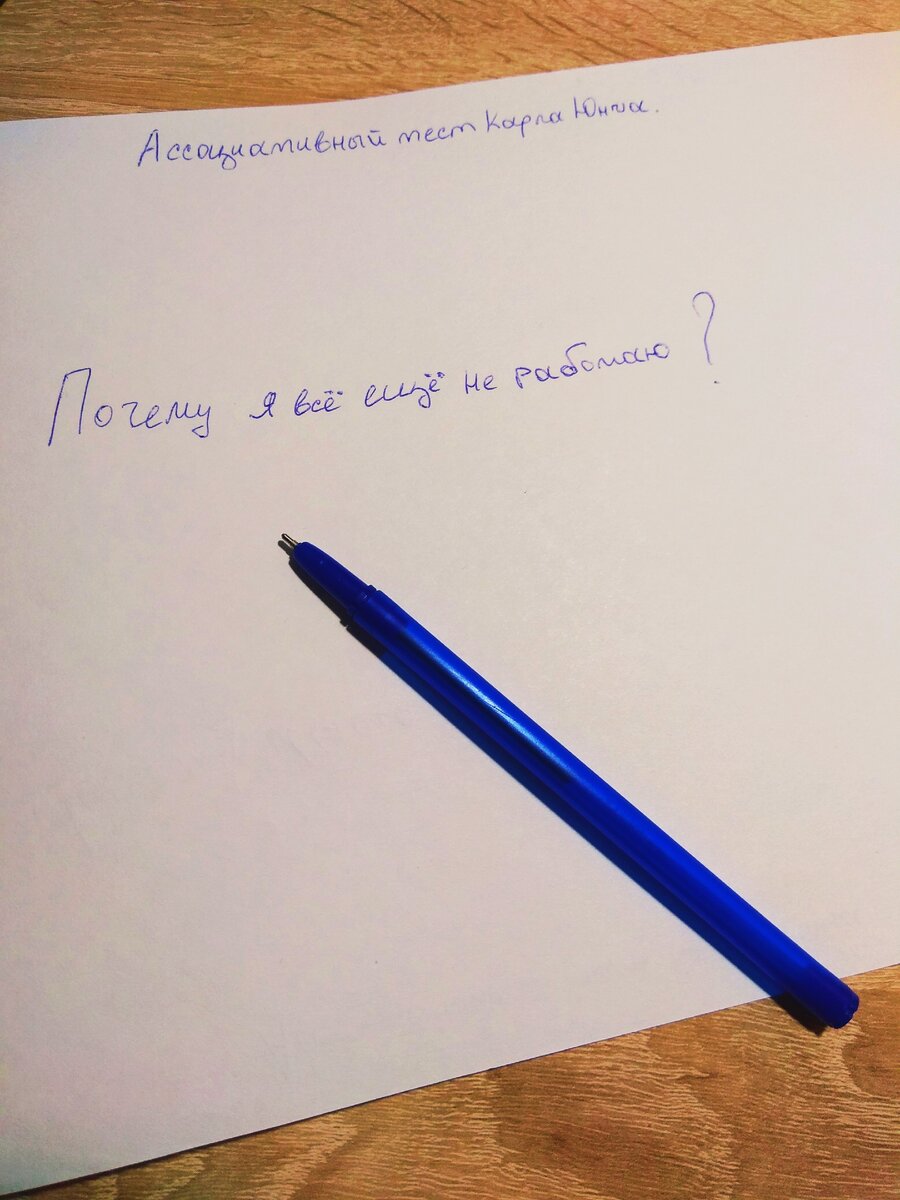 Ассоциативный тест Карла Юнга.
Почему я всё ещё не работаю?